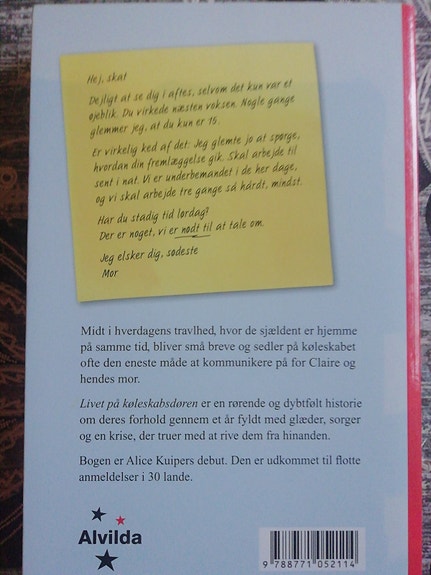 Hej, skat
Dejligt at se dig i aftes, selvom det kun var et
øjeblik. Du virkede næsten voksen. Nogle gange
glemmer jeg, at du kun er 15.
Er virkelig ked af det: Jeg glemte jo at spørge,
hvordan din fremlæggelse gik. Skal arbejde til
sent i nat. Vi er underbemandet i de her dage,
og vi skal arbejde tre gange så hårdt, mindst.
Har du stadig tid lørdag?
Der er noget, vi er nødt til at tale om.
Jeg elsker dig, sødeste
Mor
Midt i hverdagens travlhed, hvor de sjældent er hjemme
på samme tid, bliver små breve og sedler på køleskabet
ofte den eneste måde at kommunikere på for Claire og
hendes mor.
Livet på køleskabsdøren er en rørende og dybtfølt historie
om deres forhold gennem et år fyldt med glæder, sorger
og en krise, der truer med at rive dem fra hinanden.
Bogen er Alice Kuipers debut. Den er udkommet til flotte
anmeldelser i 30 lande.
Alvilda
9 788771 052114